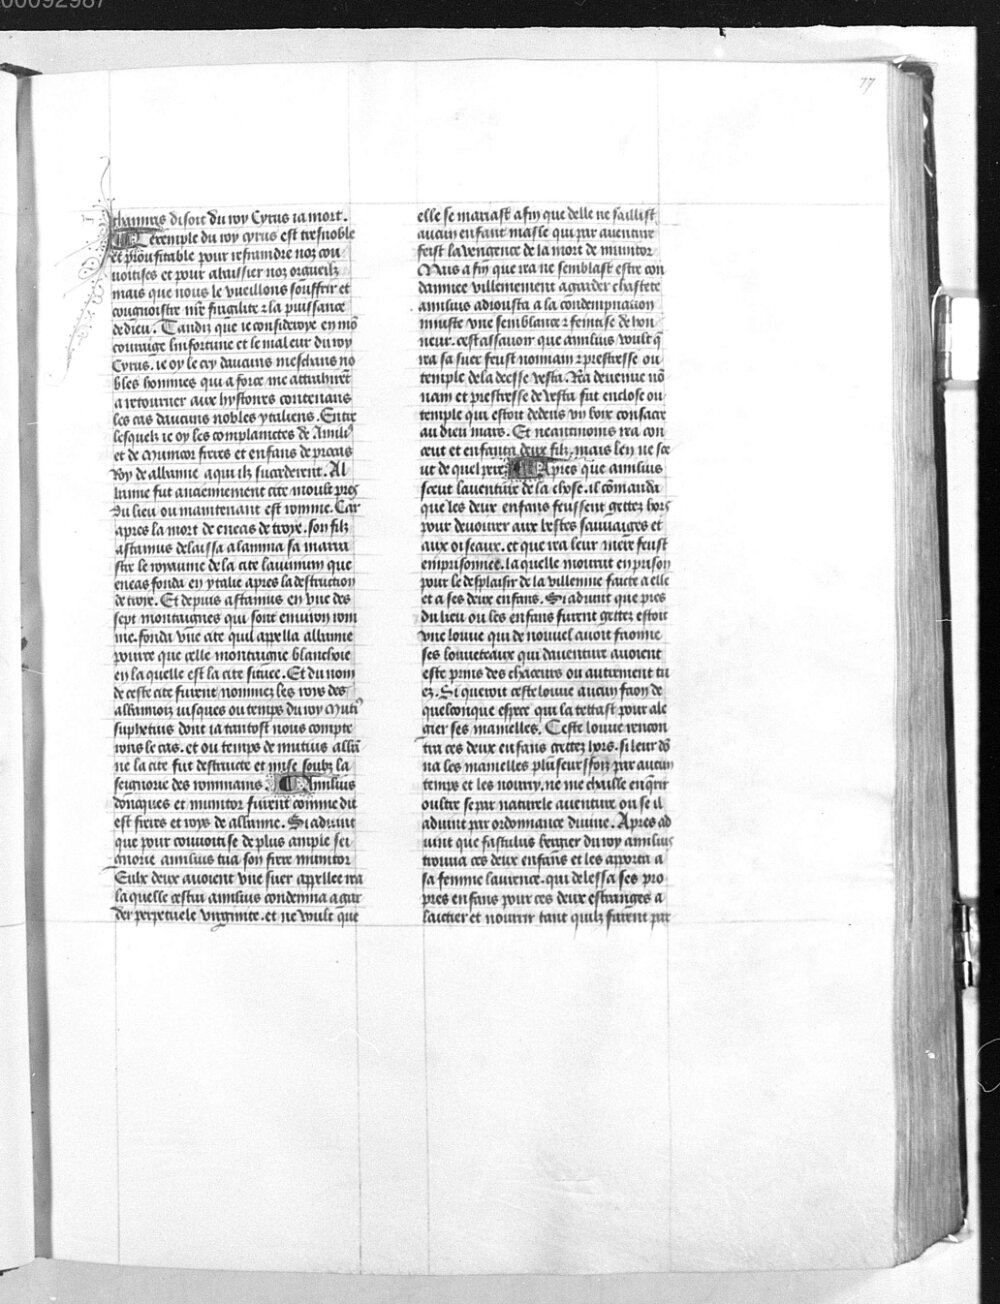 00092987
77
thamiris disoit du roy Cyrus ia mort.
Lexemple du roy cyrus est tresnoble
et prouffitable pour refraindre noz cou
uoitises et pour abaissier noz orgueilz
mais que nous le vueillons souffrir et
congnoistre nre fragilite ⁊ la puissance
de dieu. Tandiz que ie consideroye en mō
couraige linfortune et le maleur du roy
Cyrus. ie oy le cry daucuns meschans no
bles hommes qui a force me attrahirēt
a retourner aux hystoires contenans
les cas daucuns nobles ytaliens. Entre
lesquelz ie oy les complainctes de Amiliꝰ
et de Mumitor freres et enfans de procas
Roy de albanne a qui ilz succederent. Al
banne fut anciennement cite moult pres
du lieu ou maintenant est romme. Car
apres la mort de eneas de troye. son filz
astanius delaissa a lauinia sa marra
stre le royaume de la cite lauinium que
eneas fonda en ytalie apres la destruction
de troye. Et depuis astanius en vne des
sept montaignes qui sont enuiron rom
me. fonda vne cite quil appella albanne
pource que celle montaigne blanchoie
en la quelle est la cite situee. Et du nom
de ceste cite furent nommez les roys des
albannois iusques ou temps du roy Mutiꝰ
suphetius dont ia tantost nous compte
rons le cas. et ou temps de mutius albā
ne la cite fut destruicte et mise soubz la
seignorie des rommains. Amilius
doncques et munitor furent comme dit
est freres et roys de albanne. Si aduint
que pour conuoitise de plus ample sei
gnorie amilius tua son frere munitor
Eulx deux auoient vne suer appellee rea
la quelle cestui amilius condemna a gar
der perpetuele virginite. et ne voult que
elle se mariast afin que delle ne saillist
aucun enfant masle qui par auenture
feist la vengence de la mort de munitor
Mais afin que rea ne semblast estre con
dannee villenement a garder chastete
amilius adiousta a la condempnacion
iniuste vne semblance ⁊ feintise de hon
neur. cest assauoir que amilius voult q̄
rea sa suer feust nonnain ⁊ prestresse ou
temple de la deesse vesta. Rea deuenue nō
nain et prestresse de vesta fut enclose ou
temple qui estoit dedens vn bois consacre
au dieu mars. Et neantmoins rea con
ceut et enfanta deux filz. mais len ne sce
ut de quel pere. Apres que amilius
sceut lauenture de la chose. il cōmanda
que les deux enfans feussent gettez hors
pour deuourer aux bestes sauuaiges et
aux oiseaux. et que rea leur mere feust
emprisonnee. la quelle mourut en prison
pour le desplaisir de la villenie faicte a elle
et a ses deux enfans. Si aduint que pres
du lieu ou les enfans furent gettez estoit
vne louue qui de nouuel auoit faonne
ses louueteaux qui dauenture auoient
este prins des chaceurs ou autrement tu
ez. Si queroit ceste louue aucun faon de
quelconque espece qui la tettast pour ale
gier ses mamelles. Ceste louue rencon
tra ces deux enfans gettez hors. si leur dō
na les mamelles plusieurs fois par aucun
temps et les nourry. ne me chaille enq̄rir
oultre se par naturele auenture ou se il
aduint par ordonnance diuine. Apres ad
uint que fastulus bergier du roy amilius
trouua ces deux enfans et les apporta a
sa femme laurence. qui delessa ses pro
pres enfans pour ces deux estranges a
laictier et nourrir tant quilz furent par